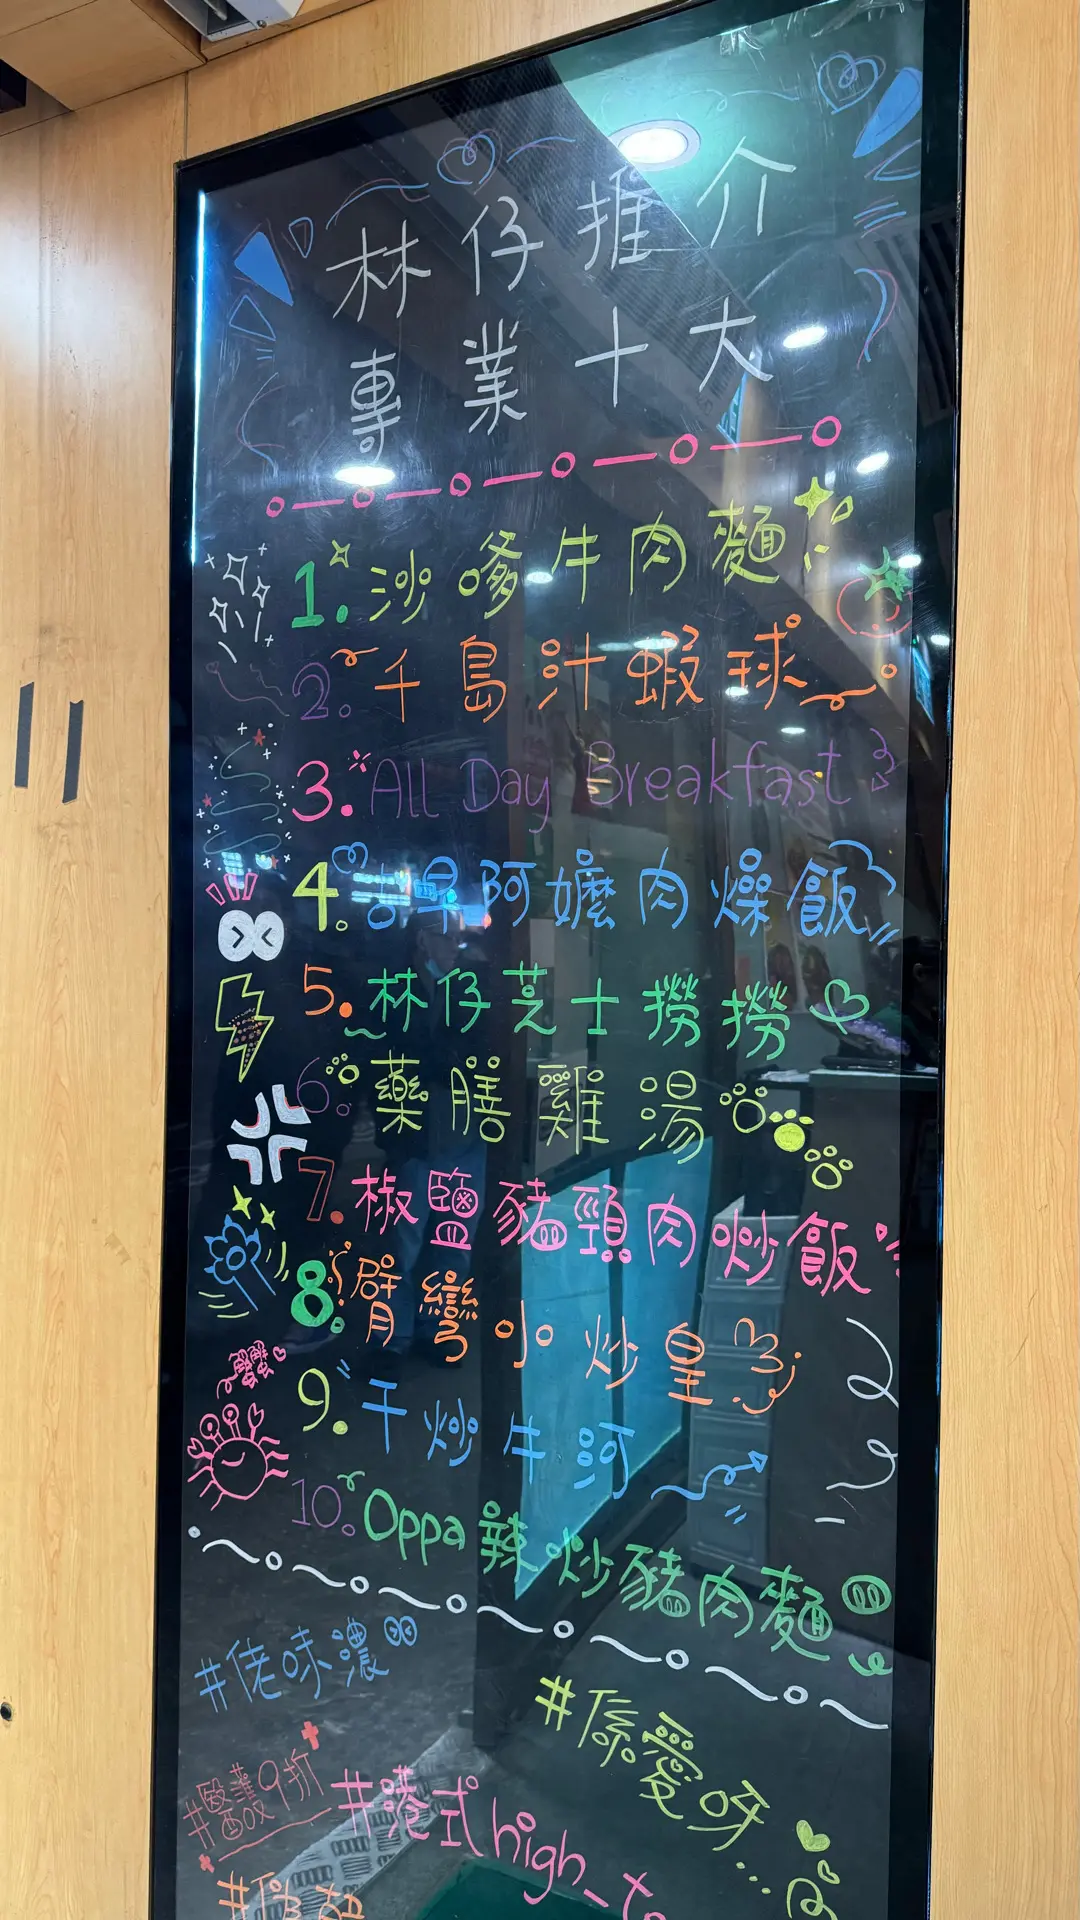 林仔推介
專業十大
1. 沙嗲牛肉麵
2. 千島汁蝦球
3. All Day Breakfast
4. 古早阿嬤肉燥飯
5. 林仔芝士撈撈
6. 藥膳雞湯
7. 椒鹽豬頸肉炒飯
8. 臂彎小炒皇
蟹蟹
9. 干炒牛河
10. Oppa辣炒豬肉麵
#佬味濃
#係愛呀...
#醫護9折
#港式high_t